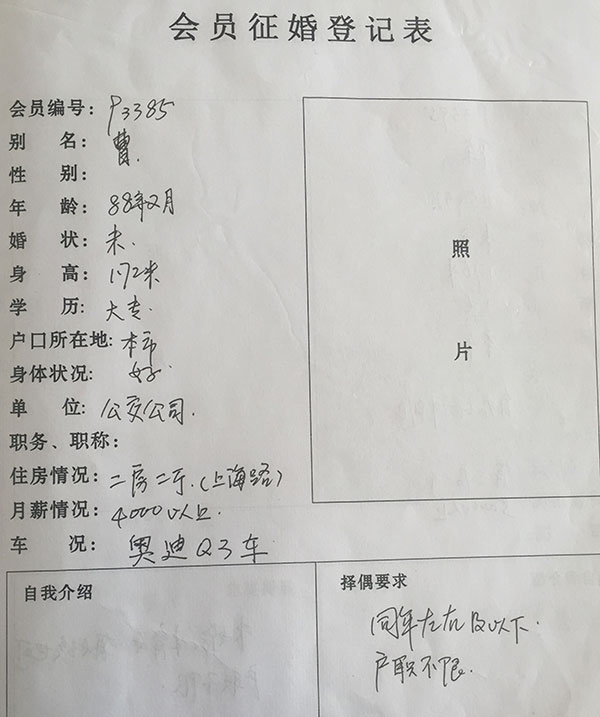 会员征婚登记表
会员编号：P3385
别 名：曹.
性 别：
年 龄：88年2月
婚 状：未.
身 高：1.72米
学 历：大专.
户口所在地:本市
身体状况: 好
单 位:公交公司.
职务、职称：
住房情况：二房二厅.(上海路)
月薪情况：4000以上.
车 况：奥迪Q3车
照
片
自我介绍
择偶要求
同年左右及以下.
户职不限.